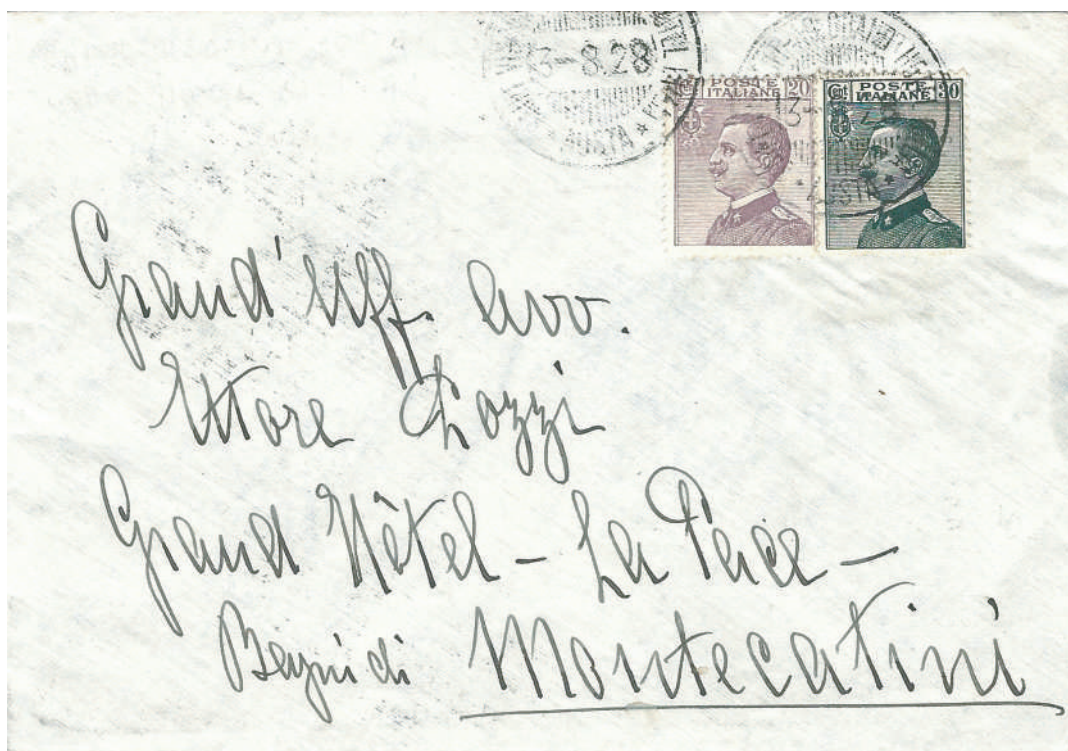 13-8.28
AOSTA
POSTE 20
ITALIANE
POSTE 30
ITALIANE
Grand'Uff. Avv.
Ettore Lozzi
Grand Hôtel - La Pace -
Bagni di Montecatini